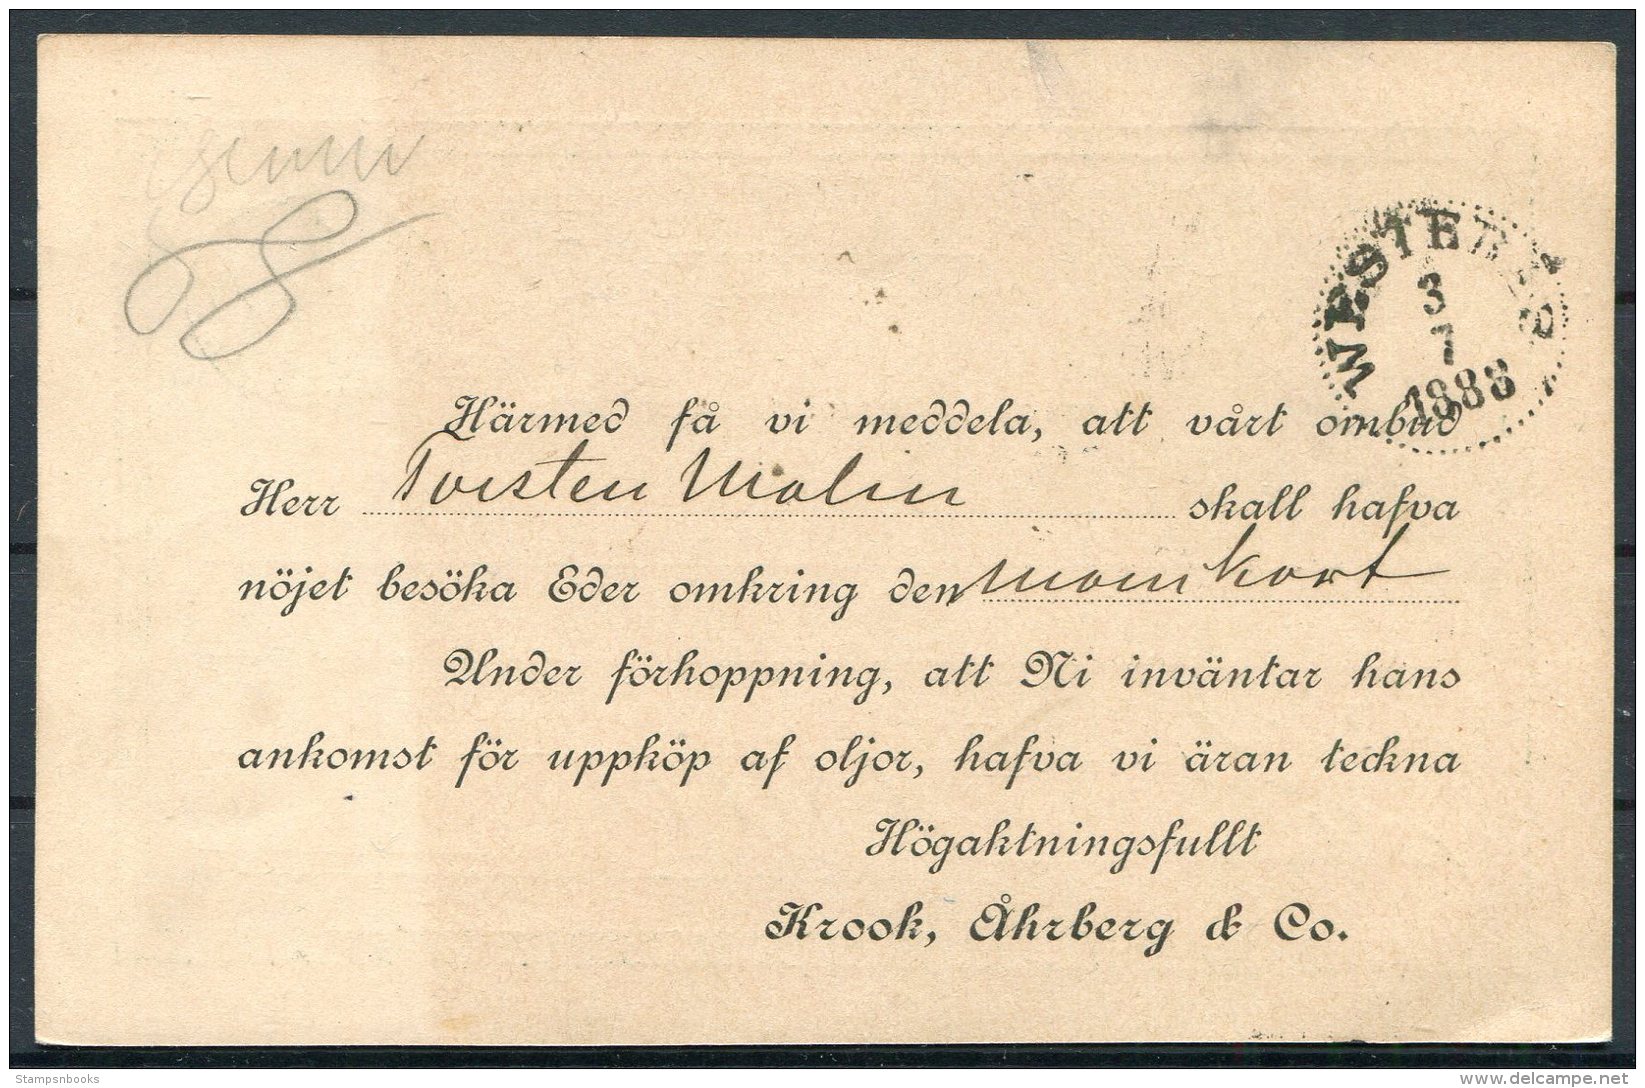 WESTERÅS
3
7
1888
Härmed få vi meddela, att vårt ombud
Herr Torsten Malin skall hafva
nöjet besöka Eder omkring den inom kort
Under förhoppning, att Ni inväntar hans
ankomst för uppköp af oljor, hafva vi äran teckna
Högaktningsfullt
Krook, Åhrberg & Co.
Stampsnbooks
delcampe.net